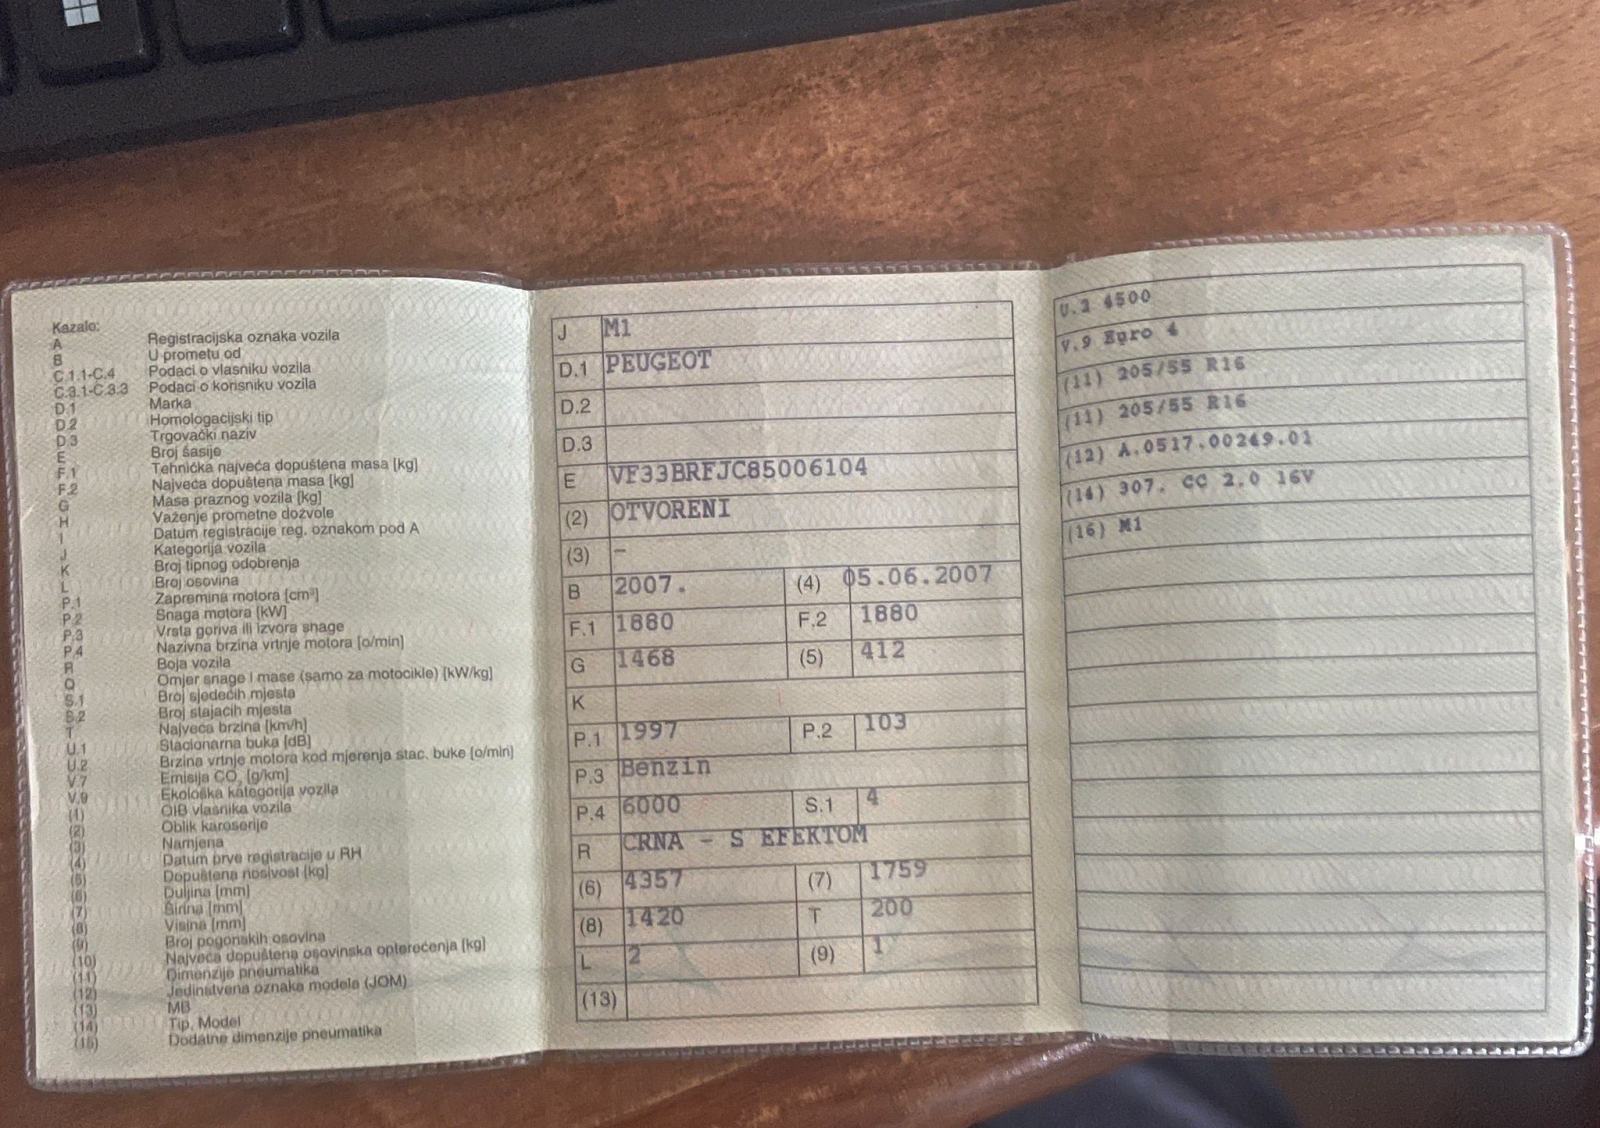 Kazalo:
A Registracijska oznaka vozila
B U prometu od
C.1.1-C.4 Podaci o vlasniku vozila
C.3.1-C.3.3 Podaci o korisniku vozila
D.1 Marka
D.2 Homologacijski tip
D.3 Trgovački naziv
E Broj šasije
F.1 Tehnička najveća dopuštena masa [kg]
F.2 Najveća dopuštena masa [kg]
G Masa praznog vozila [kg]
H Važenje prometne dozvole
I Datum registracije reg. oznakom pod A
J Kategorija vozila
K Broj tipnog odobrenja
L Broj osovina
P.1 Zapremina motora [cm³]
P.2 Snaga motora [kW]
P.3 Vrsta goriva ili izvora snage
P.4 Nazivna brzina vrtnje motora [o/min]
R Boja vozila
Q Omjer snage i mase (samo za motocikle) [kW/kg]
S.1 Broj sjedećih mjesta
S.2 Broj stajaćih mjesta
T Najveća brzina [km/h]
U.1 Stacionarna buka [dB]
U.2 Brzina vrtnje motora kod mjerenja stac. buke [o/min]
V.7 Emisija CO₂ [g/km]
V.9 Ekološka kategorija vozila
(1) OIB vlasnika vozila
(2) Oblik karoserije
(3) Namjena
(4) Datum prve registracije u RH
(5) Dopuštena nosivost [kg]
(6) Duljina [mm]
(7) Širina [mm]
(8) Visina [mm]
(9) Broj pogonskih osovina
(10) Najveća dopuštena osovinska opterećenja [kg]
(11) Dimenzije pneumatika
(12) Jedinstvena oznaka modela (JOM)
(13) MB
(14) Tip, Model
(15) Dodatne dimenzije pneumatika
J M1
D.1 PEUGEOT
D.2
D.3
E VF33BRFJC85006104
(2) OTVORENI
(3) -
B 2007. (4) 05.06.2007
F.1 1880 F.2 1880
G 1468 (5) 412
K
P.1 1997 P.2 103
P.3 Benzin
P.4 6000 S.1 4
R CRNA - S EFEKTOM
(6) 4357 (7) 1759
(8) 1420 T 200
L 2 (9) 1
(13)
U.2 4500
V.9 Euro 4
(11) 205/55 R16
(11) 205/55 R16
(12) A.0517.00249.01
(14) 307. CC 2.0 16V
(16) M1